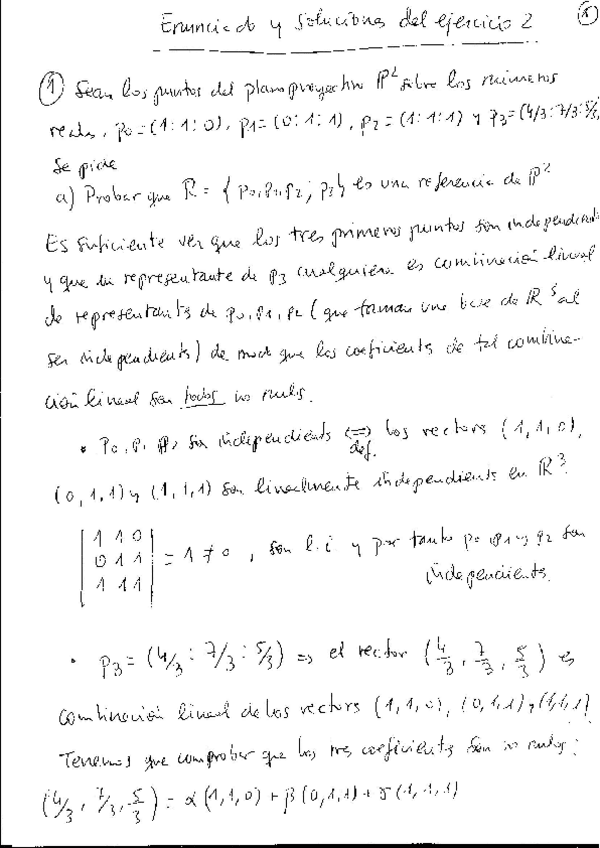 Enunciado y soluciones del ejercicio 2
1
① Sean los puntos del plano proyectivo ℙ² sobre los números
reales, p₀=(1:1:0), p₁=(0:1:1), p₂=(1:1:1) y p₃=(4/3:7/3:5/3)
Se pide
a) Probar que R = { p₀,p₁,p₂; p₃} es una referencia de ℙ²
Es suficiente ver que los tres primeros puntos son independientes
y que un representante de p₃ cualquiera es combinación lineal
de representantes de p₀,p₁,p₂ (que forman una base de ℝ³ al
ser independientes) de modo que los coeficientes de tal combina-
ción lineal son todos no nulos.
• p₀, p₁, p₂ son independientes ⟺ los vectores (1,1,0),
def.
(0,1,1) y (1,1,1) son linealmente independientes en ℝ³.
| 1 1 0 |
| 0 1 1 | = 1 ≠ 0, son l.i y por tanto p₀, p₁ y p₂ son
| 1 1 1 |
independientes.
• p₃ = (4/3 : 7/3 : 5/3) ⇒ el vector (4/3, 7/3, 5/3) es
combinación lineal de los vectores (1,1,0), (0,1,1) y (1,1,1)
Tenemos que comprobar que los tres coeficientes son no nulos:
(4/3, 7/3, 5/3) = α(1,1,0) + β(0,1,1) + γ(1,1,1)